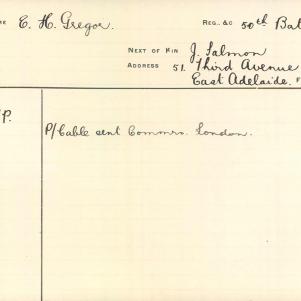 C. H. Gregor. REG. &C 50th Bat
NEXT OF KIN J. Salmon
ADDRESS 51. Third Avenue
East Adelaide.
P.
P/Cable sent Commrs. London.